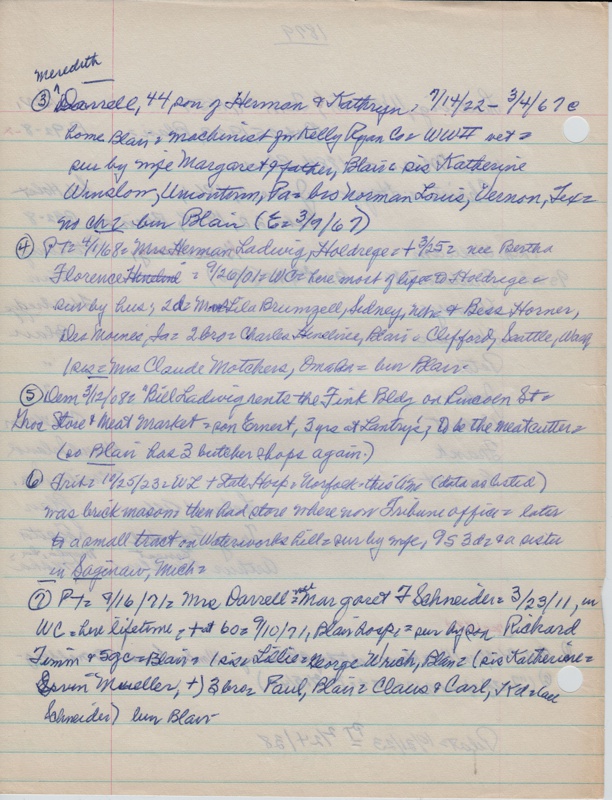 Meredith
③ Darrell, 44, son of Herman & Kathryn, 7/14/22 - 3/4/67 @
home Blair = machinist for Kelly Ryan Co = WWII vet =
sur by wife Margaret & father, Blair & sis Katherine
Winslow, Uniontown, Pa = bro Norman Louis, Vernon, Tex =
no ch = bur Blair (E = 3/9/67)
④ PT = 4/1/68 = Mrs Herman Ladwig, Holdrege = + 3/25 = nee Bertha
Florence = 9/26/01 = WC = here most of life = to Holdrege =
sur by hus; 2d = Lila Brumzell, Sidney, Neb & Bess Horner,
Des Moines, Ia = 2 bro = Charles Hendrix, Blair & Clifford, Seattle, Wash
1 sis = Mrs Claude Motchers, Omaha = bur Blair
⑤ Dem 3/12/08 = "Biel Ladwig rents the Fink Bldg on Lincoln St =
Gros Store & Meat Market = son Ernest, 3 yrs at Lantry's, to be the meatcutter =
(so Blair has 3 butcher shops again.)
⑥ Trib = 10/25/23 = WL + State Hosp = Norfolk = this (data as listed)
was brick mason = then had store where now Tribune office = later
to a small tract on Waterworks hill = sur by wife, 9s 3d = & a sister
in Saginaw, Mich =
⑦ PT = 9/16/71 = Mrs Darrell = Margaret F Schneider = 3/23/11, in
WC = here lifetime, + at 60 = 9/10/71, Blair hosp, = sur by son Richard
Timm & 5gc = Blair = 1 sis = Lillie = George Wrich, Blair = (sis Katherine =
Ervin Mueller, +) 3 bro = Paul, Blair = Claus & Carl, Kd =
Schneider) bur Blair